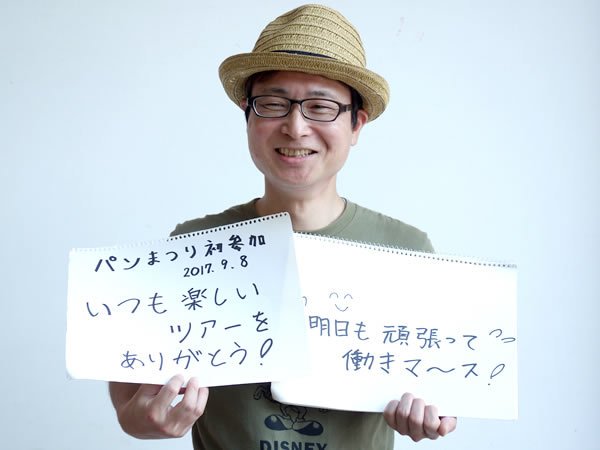 パンまつり初参加
2017.9.8
いつも楽しい
ツアーを
ありがとう!
明日も頑張って
働きマ〜ス!
DISNEY